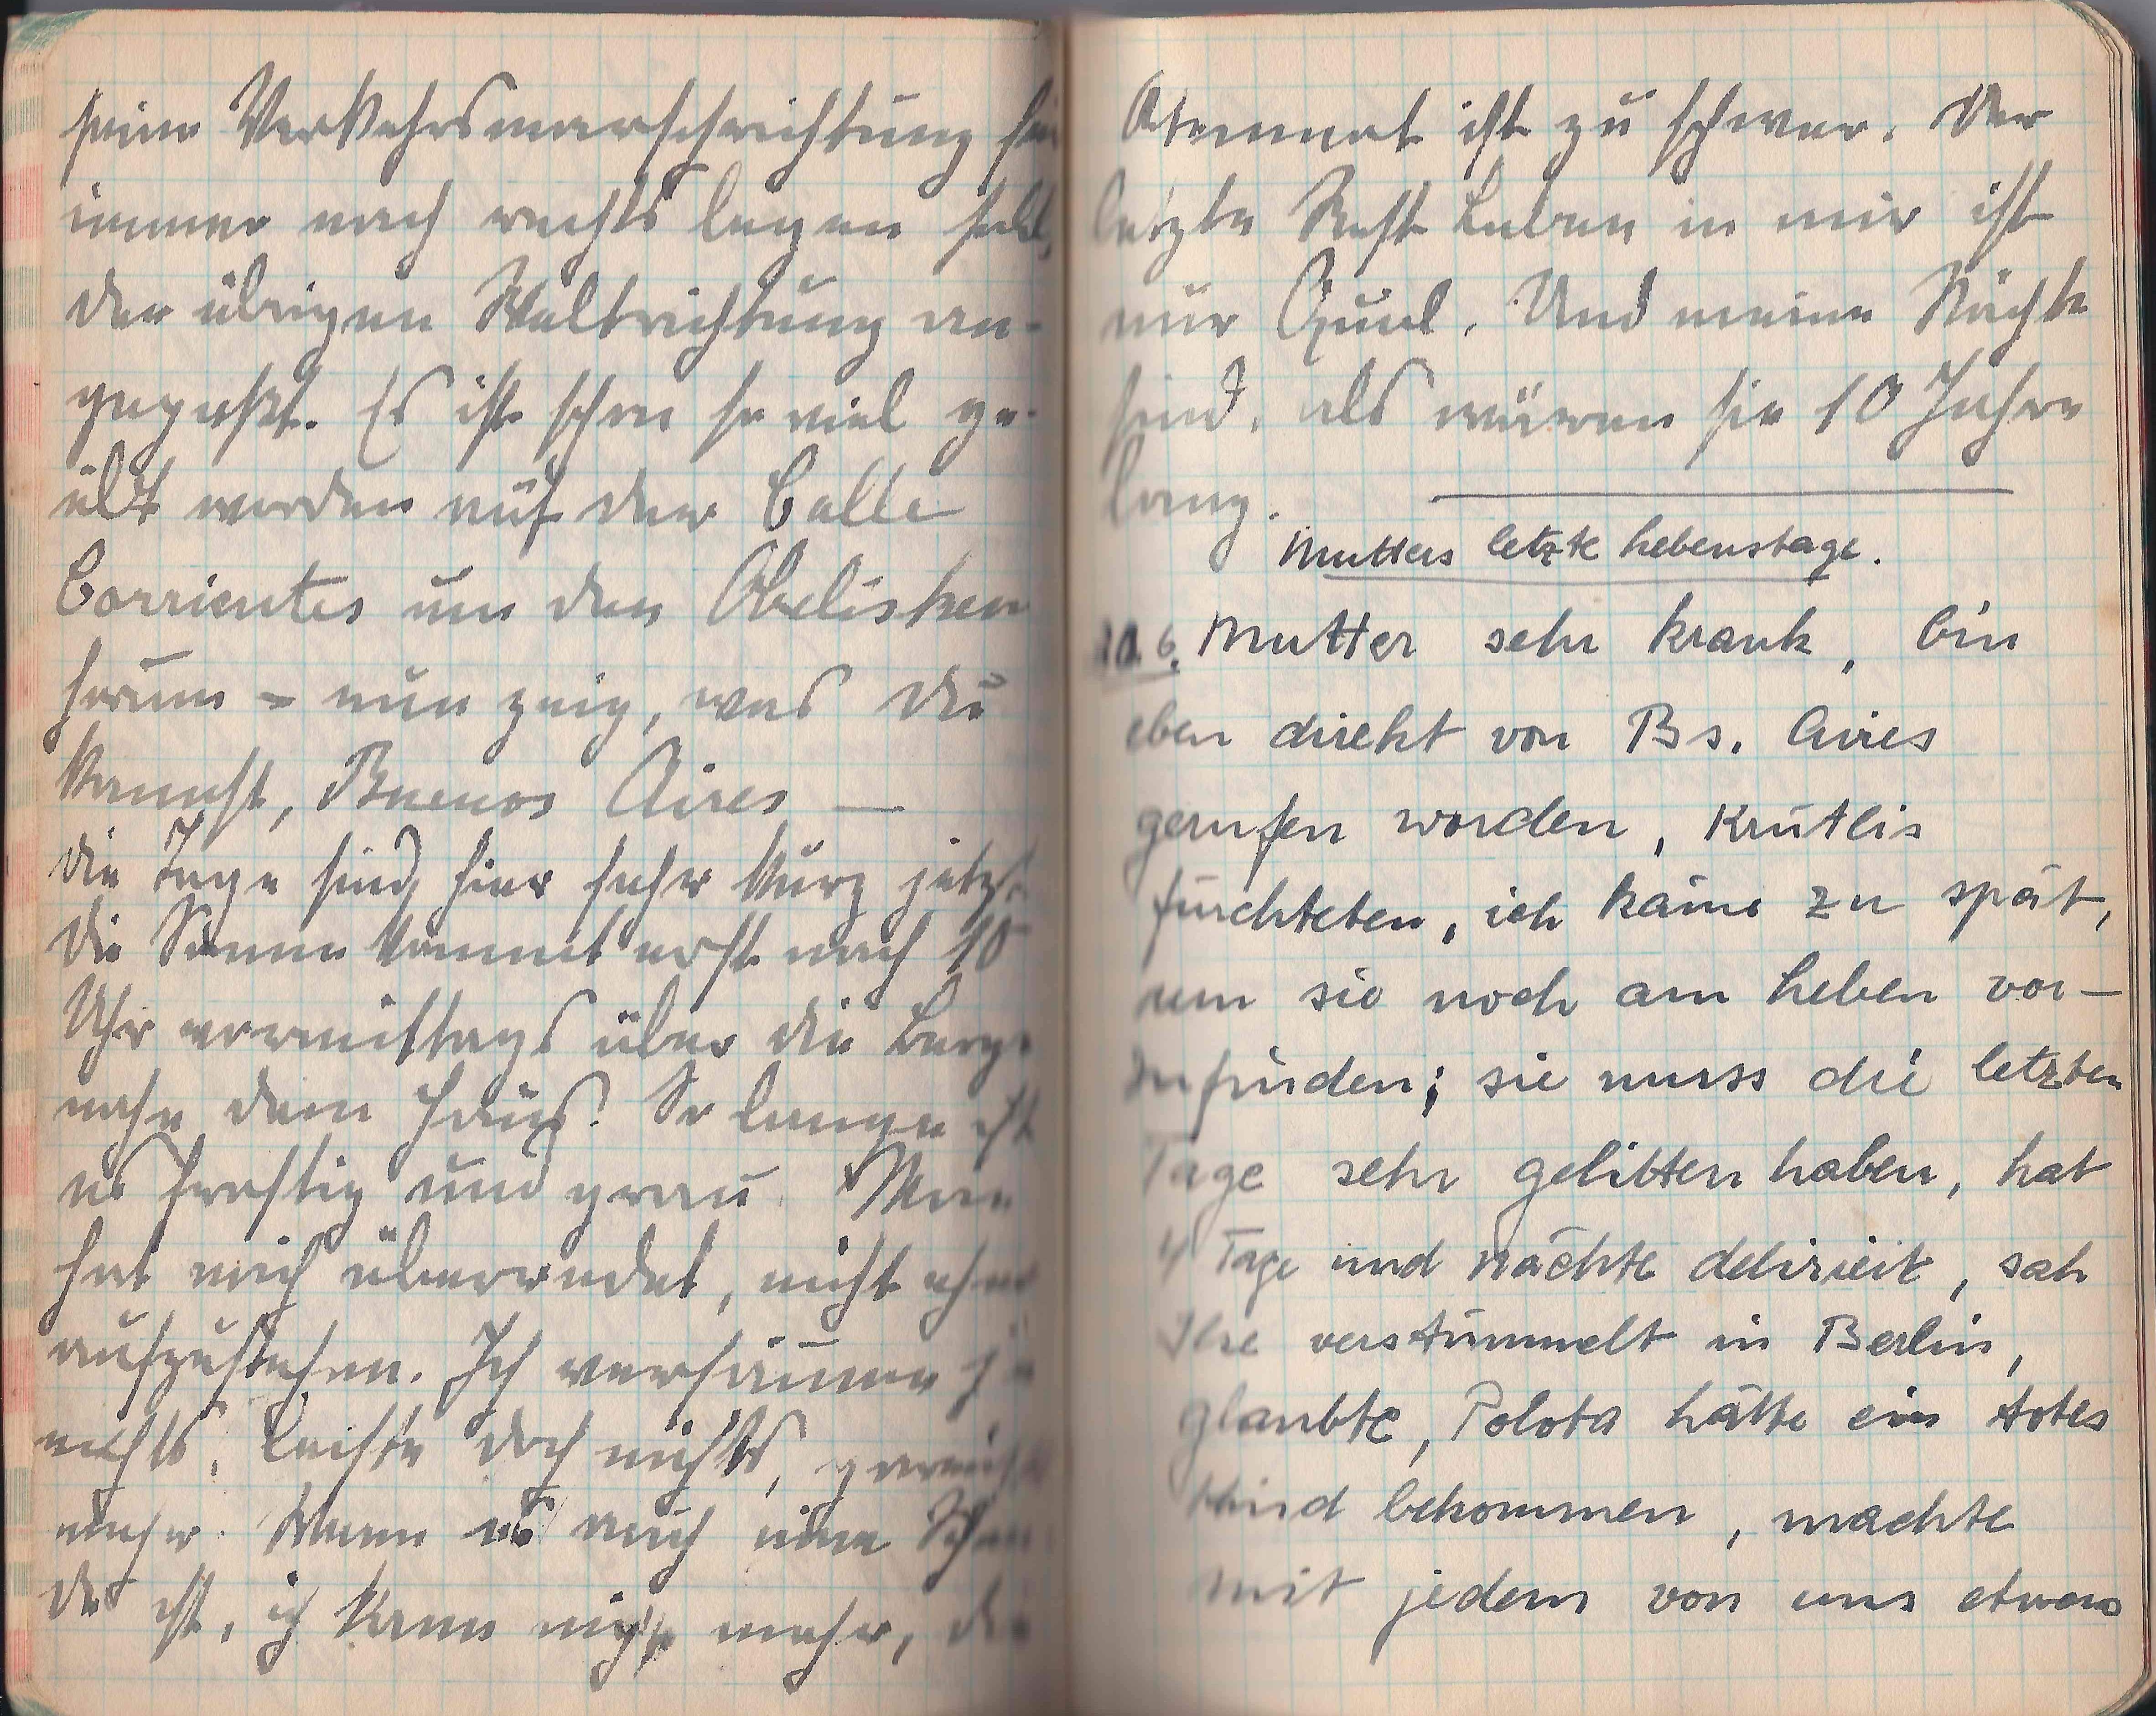 seine Verkehrsmarschrichtung hier
immer nach rechts legen soll,
der übrigen Weltrichtung an-
gepaßt. Es ist schon so viel ge-
übt worden auf der Calle
Corrientes um den Obelisken
herum = nun zeig, was Du
kannst, Buenos Aires —
Die Tage sind hier sehr kurz jetzt.
Die Sonne kommt erst nach 10
Uhr vormittags über die Berge
nahe dem Haus. So lange ist
es frostig und grau. Man
hat mich überredet, nicht eher
aufzustehen. Ich versäume ja
nichts, leiste doch nichts,
mehr. Wenn es auch eine Schan-
de ist, ich kann nicht mehr, die
Atemnot ist zu schwer. Der
letzte Rest Leben in mir ist
nur Qual. Und meine Nächte
sind, als wären sie 10 Jahre
lang.
Mutters letzte Lebenstage.
20.6. Mutter sehr krank, bin
eben direkt von Bs. Aires
gerufen worden, Krütlis
fürchteten, ich käme zu spät,
um sie noch am Leben vor-
zufinden; sie muss die letzten
Tage sehr gelitten haben, hat
4 Tage und Nächte deliriert, sah
Ilse verstümmelt in Berlin,
glaubte, Polota hätte ein totes
Kind bekommen, machte
mit jedem von uns etwas